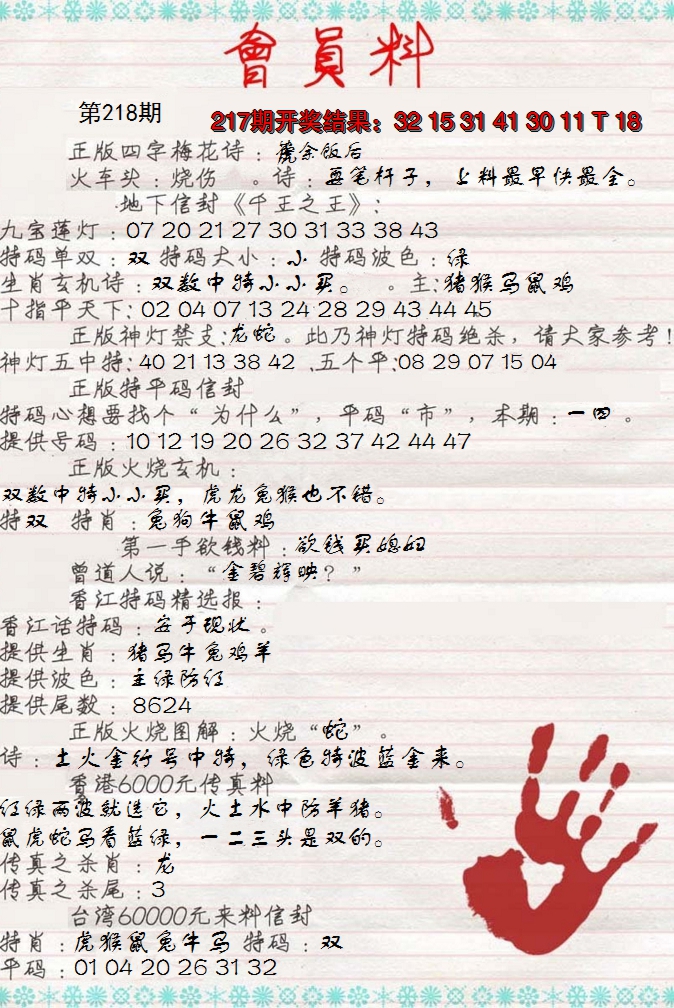 會員料
第218期
217期开奖结果：32 15 31 41 30 11 T 18
正版四字梅花诗：茶余饭后
火车头：烧伤 。诗：要笔杆子，上料最早快最全。
地下信封《千王之王》：
九宝莲灯：07 20 21 27 30 31 33 38 43
特码单双：双 特码大小：小 特码波色：绿
生肖玄机诗：双数中特小小买。 。主：猪猴马鼠鸡
十指平天下：02 04 07 13 24 28 29 43 44 45
正版神灯禁支：龙蛇。此乃神灯特码绝杀，请大家参考！
神灯五中特：40 21 13 38 42 .五个平：08 29 07 15 04
正版特平码信封
特码心想要找个“为什么”，平码“市”，本期：一四 。
提供号码：10 12 19 20 26 32 37 42 44 47
正版火烧玄机：
双数中特小小买，虎龙兔猴也不错。
特双 特肖：兔狗牛鼠鸡
第一手欲钱料：欲钱买媳妇
曾道人说：“金碧辉映？”
香江特码精选报：
香江话特码：安于现状。
提供生肖：猪马牛兔鸡羊
提供波色：主绿防红
提供尾数：8624
正版火烧图解：火烧“蛇”。
诗：土火金行号中特，绿色特波蓝金来。
香港6000元传真料
红绿两波就选它，火土水中防羊猪。
鼠虎蛇马看蓝绿，一二三头是双的。
传真之杀肖：龙
传真之杀尾：3
台湾60000元来料信封
特肖：虎猴鼠兔牛马 特码：双
平码：01 04 20 26 31 32